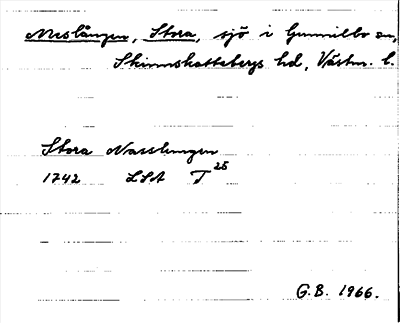 Nuslången, Stora, sjö i Gunnilbo sn,
Skinnskattebergs hd, Västm. l.
Stora Nasslengen
1742 LSA T 25
G.B. 1966.